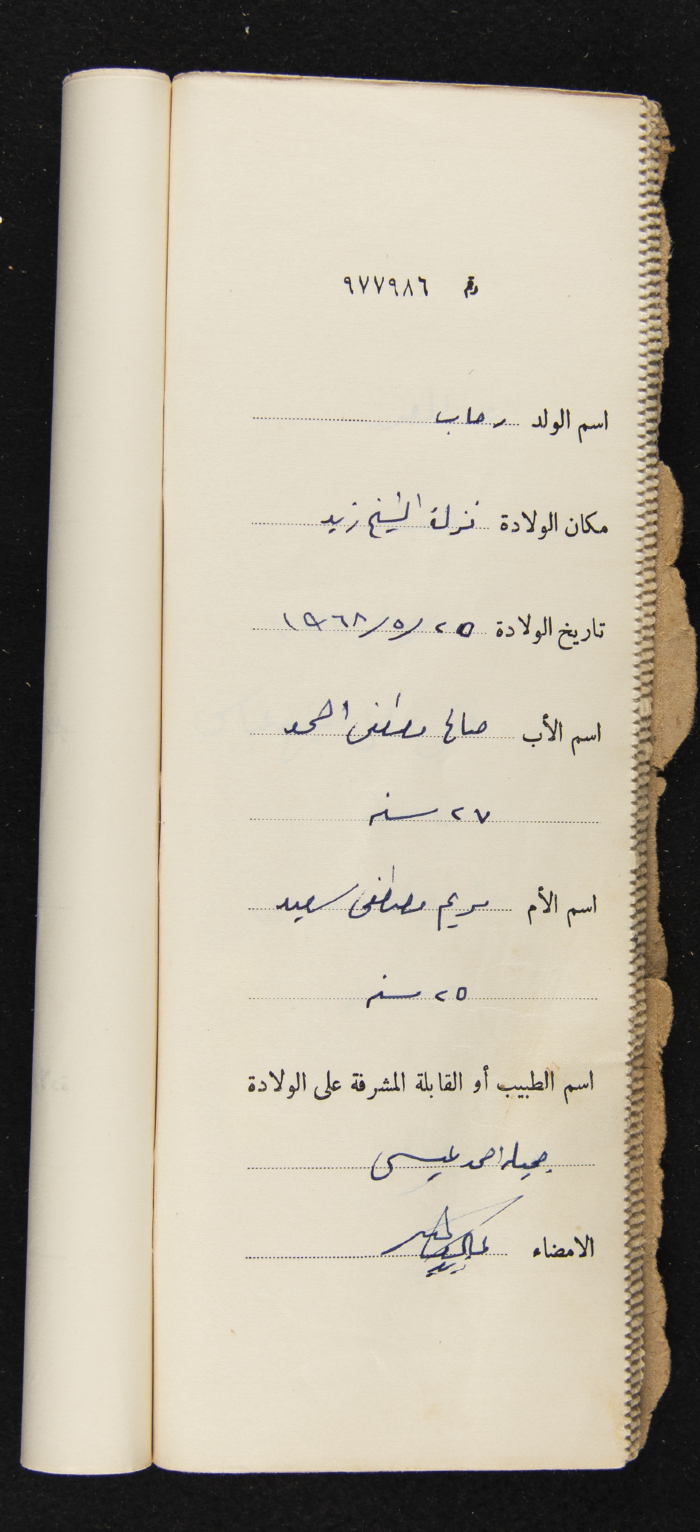 رقم ٩٧٧٩٨٦
اسم الولد رحاب
مكان الولادة نزلة الشيخ زيد
تاريخ الولادة ٢٥/٥/١٩٦٨
اسم الأب صالح مصطفى احمد
٢٧ سنه
اسم الأم مريم مصطفى سعيد
٢٥ سنه
اسم الطبيب أو القابلة المشرفة على الولادة
جميله احمد عيسى
الامضاء